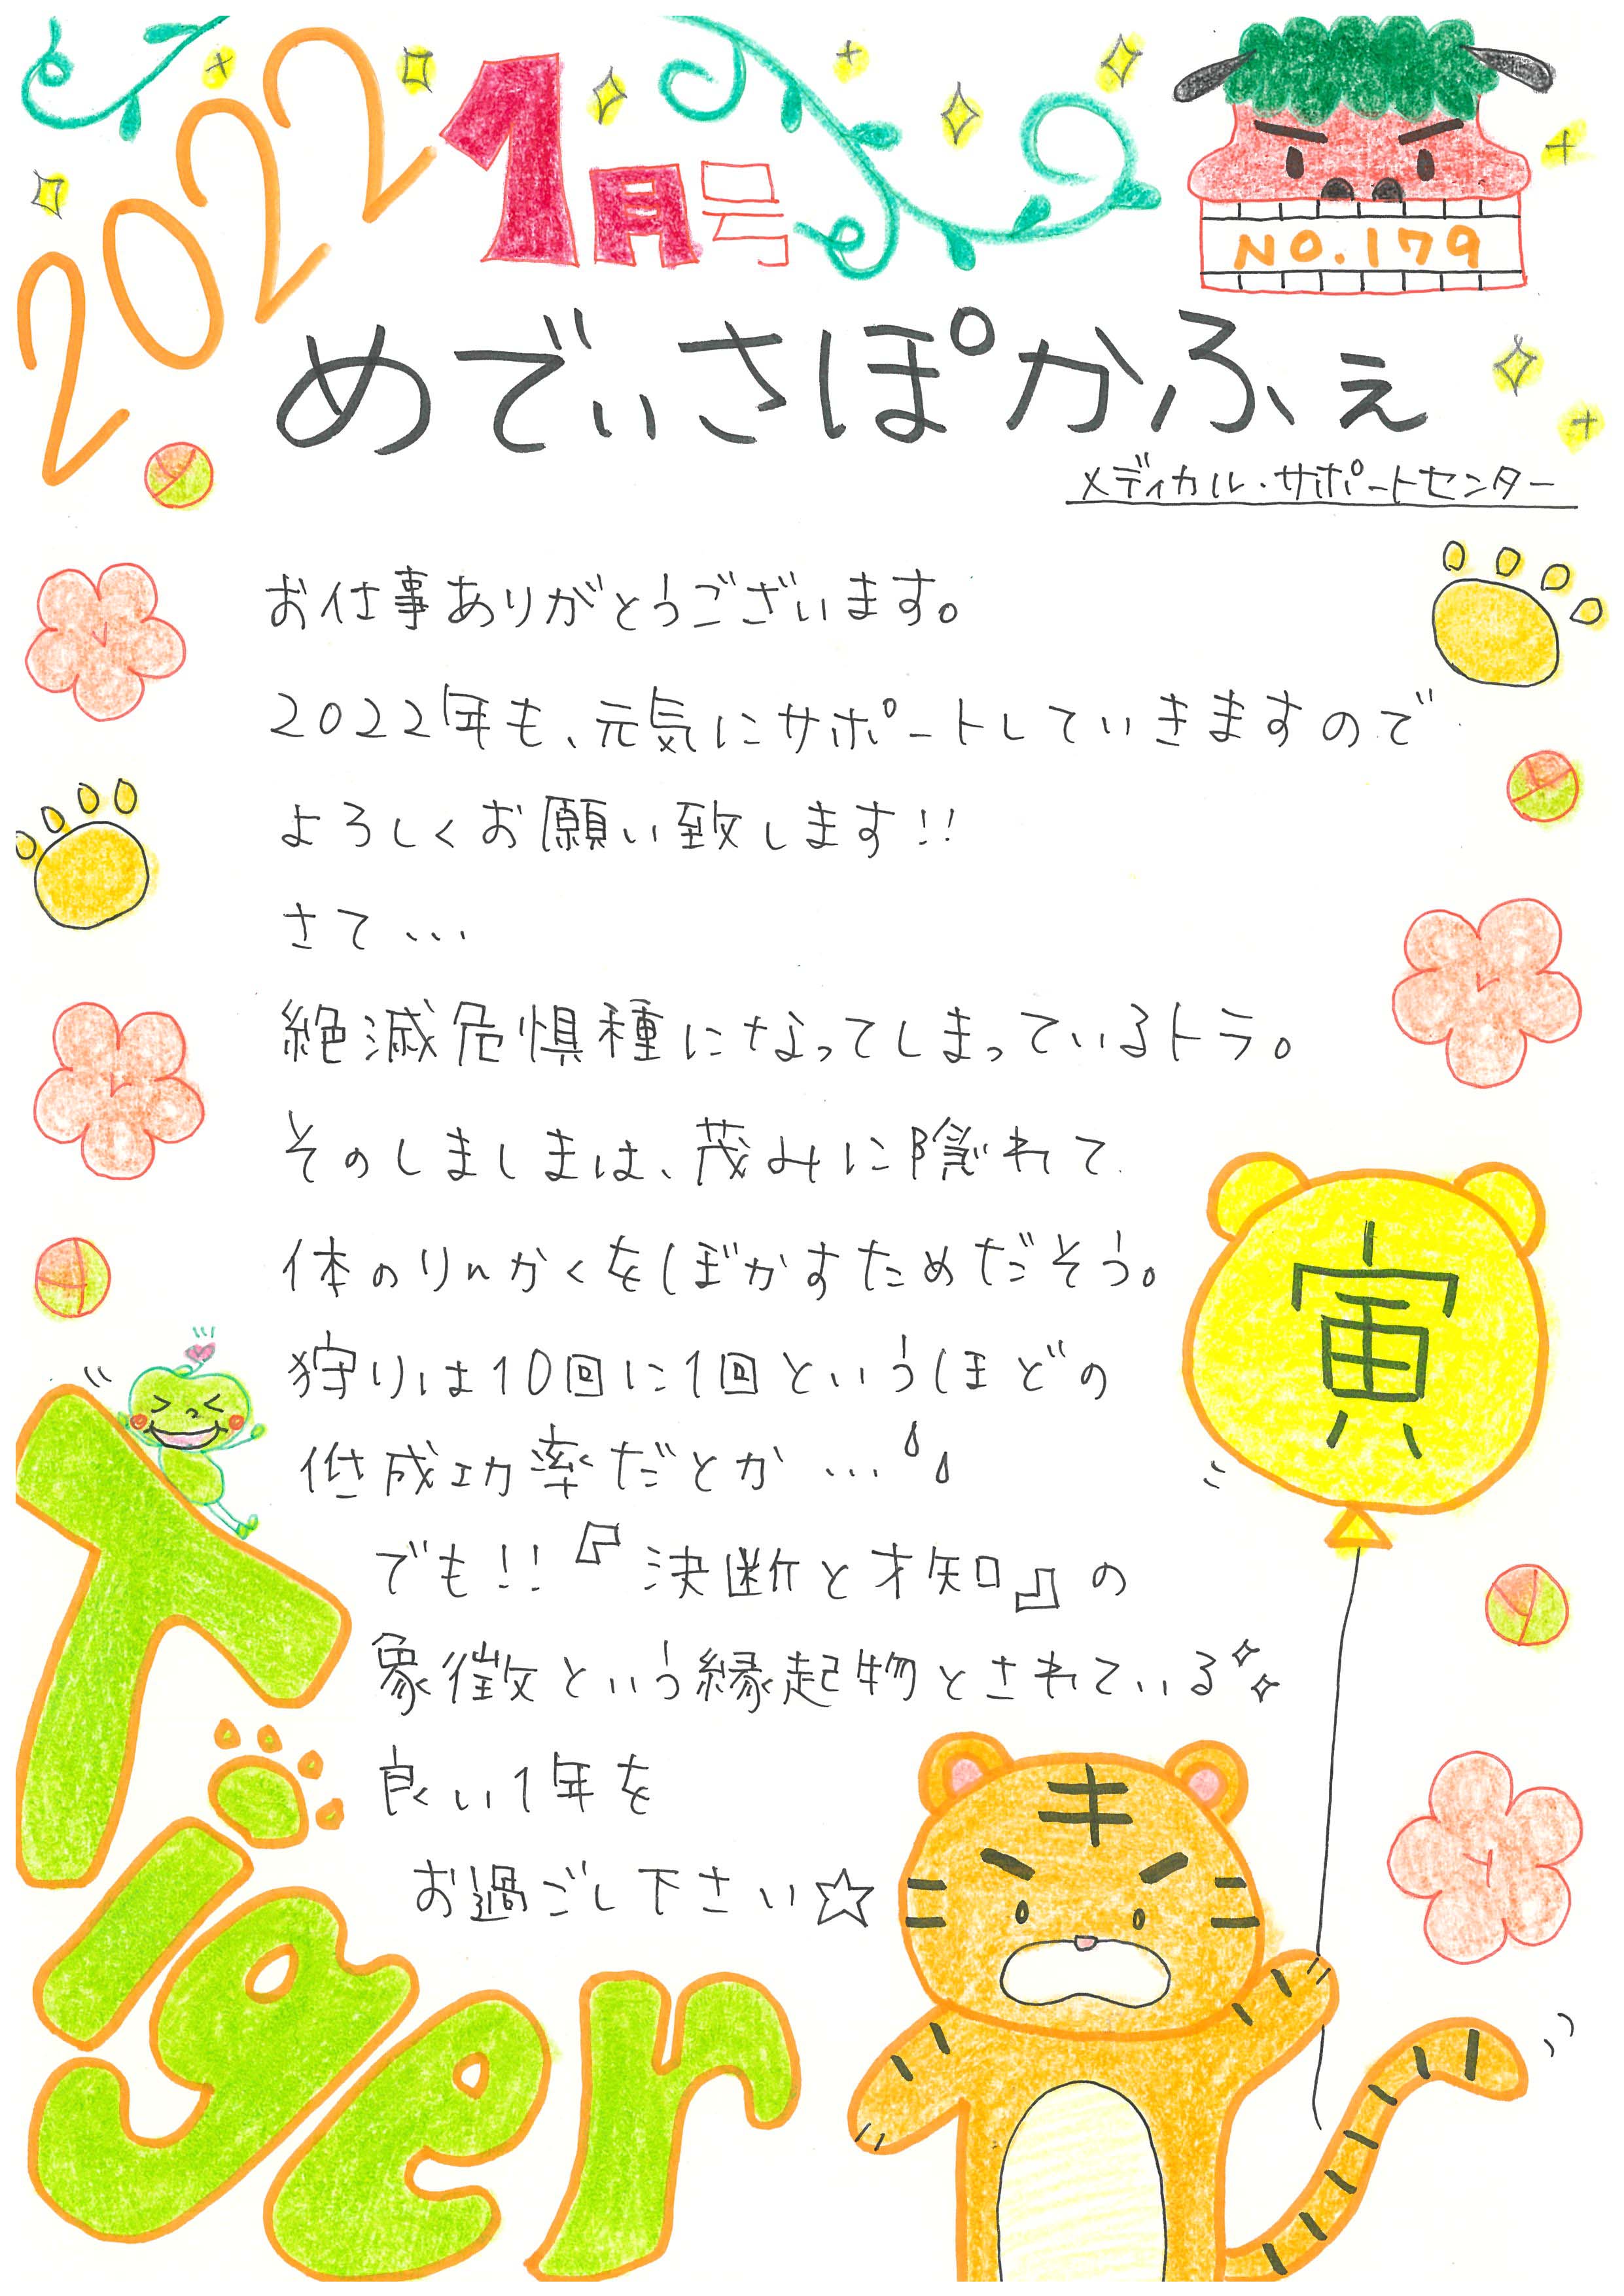 2022
1月号
NO.179
めでぃさぽかふぇ
メディカル・サポートセンター
お仕事ありがとうございます。
2022年も、元気にサポートしていきますので
よろしくお願い致します!!
さて…
絶滅危惧種になってしまっているトラ。
そのしましまは、茂みに隠れて
体のりんかくをぼかすためだそう。
狩りは10回に1回というほどの
低成功率だとか…
でも!!『決断と才知』の
象徴という縁起物とされている
良い1年を
お過ごし下さい☆
寅
Tiger